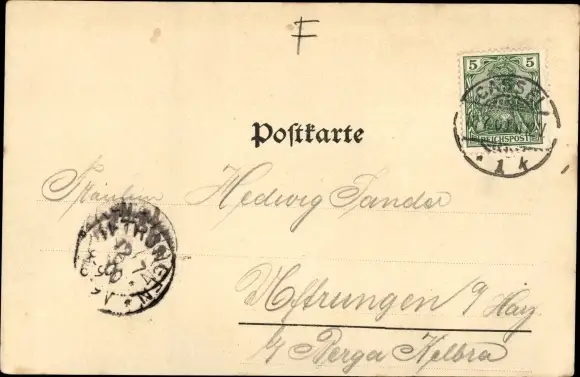 F
5 5
REICHSPOST
CASSEL
1 k
Postkarte
Fräulein Hedwig Sander
UFTRUNGEN
Uftrungen a/ Harz
b/ Berga Kelbra